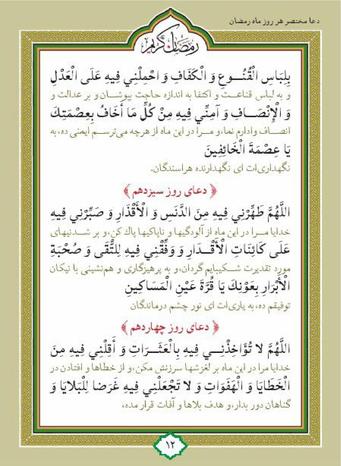 دعا مختصر هر روز ماه رمضان
رمضان کریم
بِلِبَاسِ الْقُنُوعِ وَ الْكَفَافِ وَ احْمِلْنِي فِيهِ عَلَى الْعَدْلِ
و به لباس قناعت و اکتفا به اندازه حاجت بپوشان و بر عدالت و
وَ الْإِنْصَافِ وَ آمِنِّي فِيهِ مِنْ كُلِّ مَا أَخَافُ بِعِصْمَتِكَ
انصاف وادارم نما، و مرا در این ماه از هرچه می‌ترسم ایمنی ده، به
يَا عِصْمَةَ الْخَائِفِينَ
نگهداری‌ات ای نگهدارنده هراسندگان.
﴿ دعای روز سیزدهم ﴾
اللَّهُمَّ طَهِّرْنِي فِيهِ مِنَ الدَّنَسِ وَ الْأَقْذَارِ وَ صَبِّرْنِي فِيهِ
خدایا مرا در این ماه از آلودگیها و ناپاکیها پاک کن، و بر شدنیهای
عَلَى كَائِنَاتِ الْأَقْدَارِ وَ وَفِّقْنِي فِيهِ لِلتُّقَى وَ صُحْبَةِ
مورد تقدیرت شکیبایم گردان، و به پرهیزگاری و هم‌نشینی با نیکان
الْأَبْرَارِ بِعَوْنِكَ يَا قُرَّةَ عَيْنِ الْمَسَاكِينِ
توفیقم ده، به یاری‌ات ای نور چشم درماندگان
﴿ دعای روز چهاردهم ﴾
اللَّهُمَّ لا تُؤَاخِذْنِي فِيهِ بِالْعَثَرَاتِ وَ أَقِلْنِي فِيهِ مِنَ
خدایا مرا در این ماه بر لغزشها سرزنش مکن، و از خطاها و افتادن در
الْخَطَايَا وَ الْهَفَوَاتِ وَ لا تَجْعَلْنِي فِيهِ غَرَضا لِلْبَلايَا وَ
گناهان دور بدار، و هدف بلاها و آفات قرار مده،
۱۲